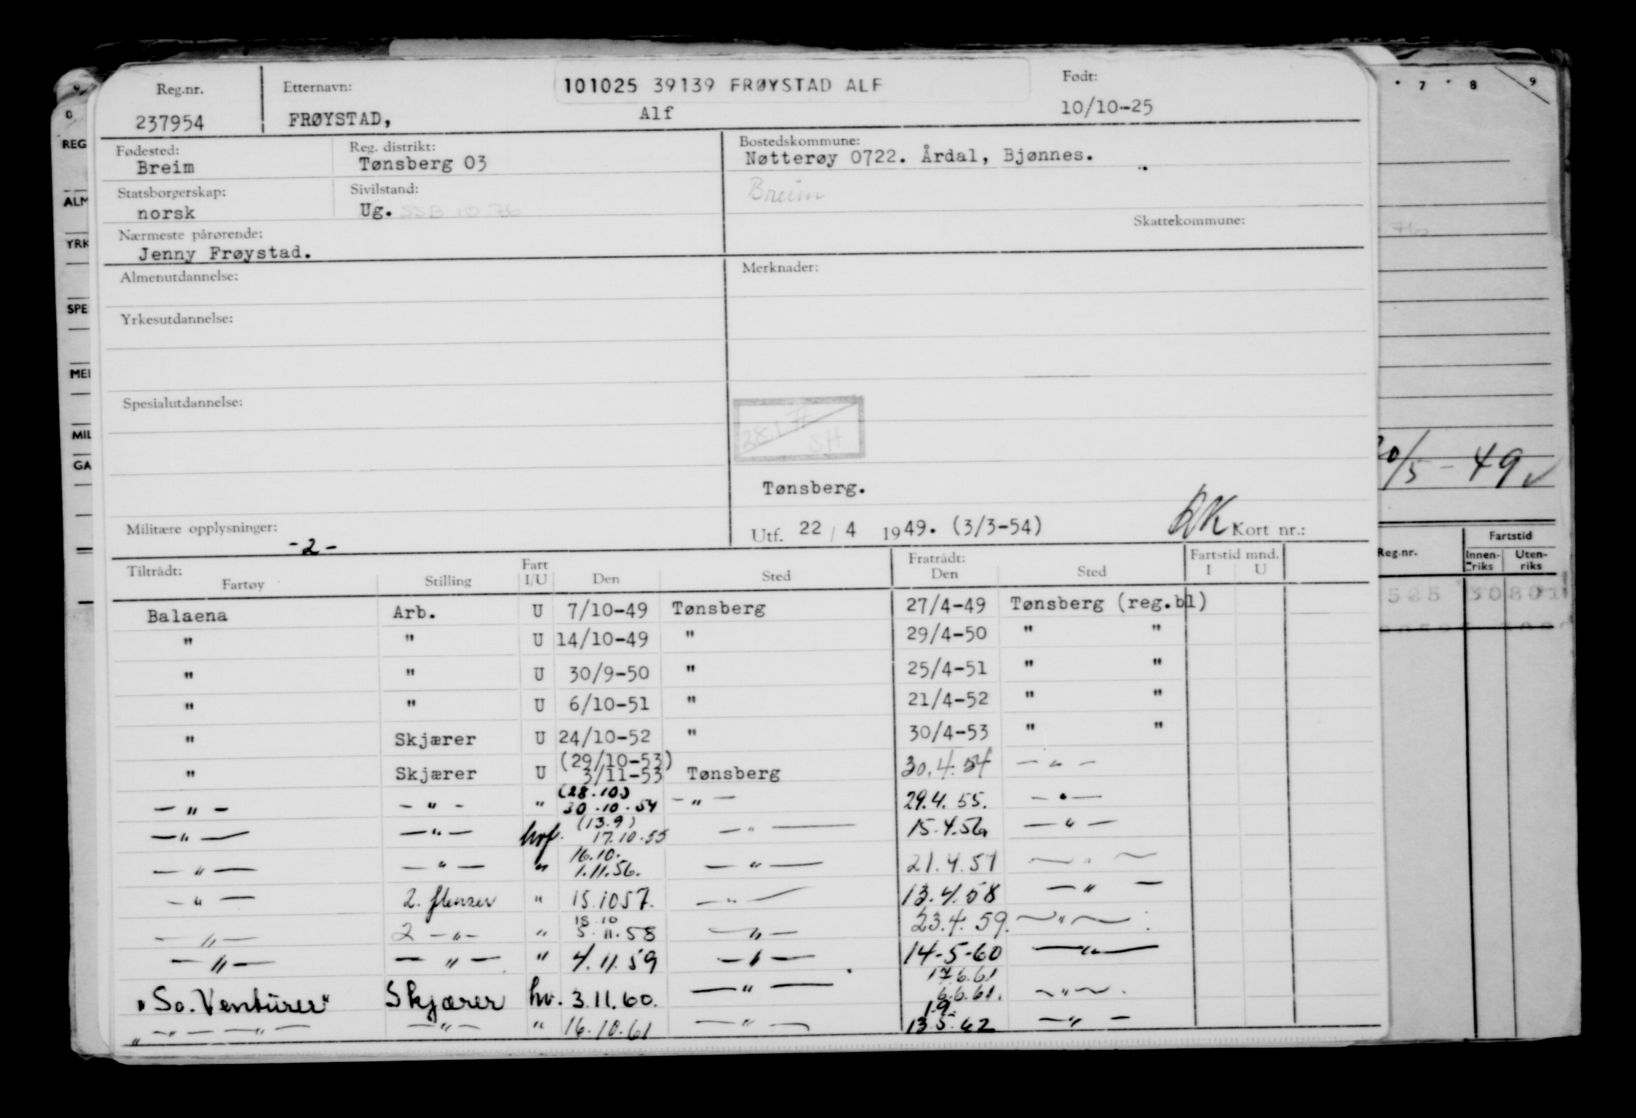 Reg.nr. Etternavn: 101025 39139 FRØYSTAD ALF Født:
237954 FRØYSTAD, Alf 10/10-25
Fødested: Reg. distrikt: Bostedskommune:
Breim Tønsberg 03 Nøtterøy 0722. Årdal, Bjønnes.
Statsborgerskap: Sivilstand: Breim
norsk Ug. SSB 10 76 Skattekommune:
Nærmeste pårørende:
Jenny Frøystad.
Almenutdannelse: Merknader:
Yrkesutdannelse:
Spesialutdannelse:
SH
Tønsberg.
Militære opplysninger: Utf. 22 / 4 1949. (3/3-54) Kort nr.:
-2-
Tiltrådt: Fratrådt: Fartstid mnd.
Fartøy Stilling Fart I/U Den Sted Den Sted I U
Balaena Arb. U 7/10-49 Tønsberg 27/4-49 Tønsberg (reg.bl)
" " U 14/10-49 " 29/4-50 " "
" " U 30/9-50 " 25/4-51 " "
" " U 6/10-51 " 21/4-52 " "
" Skjærer U 24/10-52 " 30/4-53 " "
" Skjærer U (29/10-53) 3/11-53 Tønsberg 30.4.54 - " -
- " - - " - " (28.10) 30.10.54 - " - 29.4.55. - " -
- " - - " - hvf. (13.9) 17.10.55 - " - 15.4.56 - " -
- " - - " - " 16.10. 1.11.56. - " - 21.4.57 - " -
- " - 2. flenser " 15.10 57. - " - 13.4.58 - " -
- " - 2 - " - " 18.10 5.11.58 - " - 23.4.59. - " -
- " - - " - " 4.11.59 - " - 14-5-60 - " -
"So. Venturer" Skjærer hv. 3.11.60. - " - 17.6.61 6.6.61. - " -
" - " - - " - - " - " 16.10.61 - " - 19. 13.5.62 - " -
7 8 9
REG
ALM
YRK
SPE
MIL
GA
20/5 - 49 ✓
Fartstid
Reg.nr. Innen-riks Uten-riks